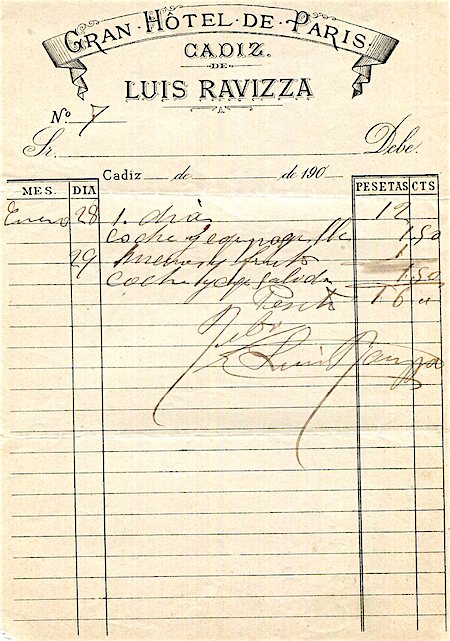 GRAN HÔTEL DE PARIS
CADIZ.
DE
LUIS RAVIZZA
Nº 7
Sr. Debe:
Cadiz de de 190
MES. DIA PESETAS CTS
Enero 28 1. dia 12
coche y equipage 1.50
29 1
coche y salida 1.50
Peseta 16 "
Recibi
Luis Ravizza